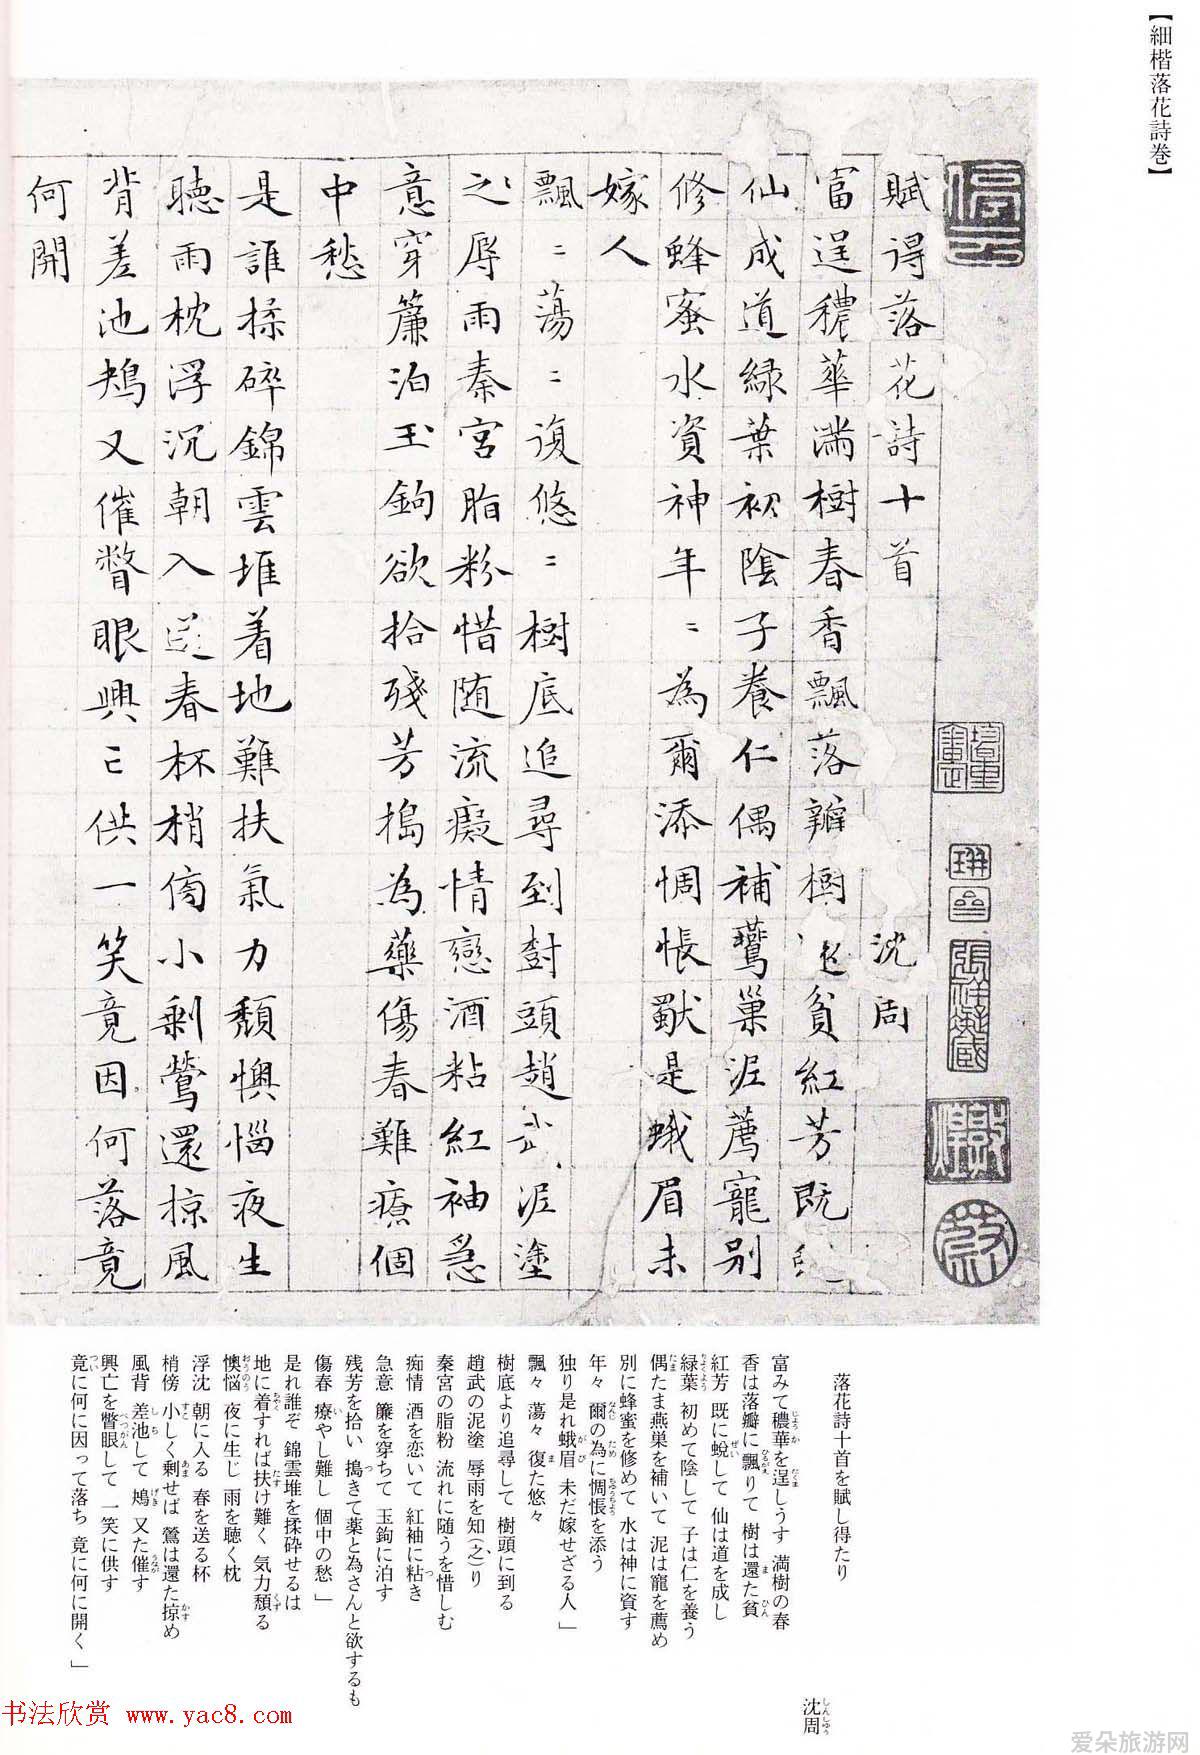 【細楷落花詩巻】
賦得落花詩十首 沈周
富逞穠華滿樹春香飄落瓣樹還貧紅芳既蛻
仙成道緑葉初陰子養仁偶補鷰巢泥薦寵別
修蜂蜜水資神年〻為爾添惆悵獨是蛾眉未
嫁人
飄〻蕩〻復悠〻樹底追尋到樹頭趙武泥塗
之辱雨秦宮脂粉惜随流癡情戀酒粘紅袖急
意穿簾泊玉鉤欲拾殘芳搗為藥傷春難療個
中愁
是誰揉碎錦雲堆着地難扶氣力頹懊惱夜生
聽雨枕浮沉朝入送春杯梢傍小剩鶯還掠風
背差池鳩又催瞥眼興亡供一笑竟因何落竟
何開
落花詩十首を賦し得たり
沈周
しんしゅう
富みて穠華を逞しうす 満樹の春
香は落瓣に飄りて 樹は還た貧
紅芳 既に蛻して 仙は道を成し
緑葉 初めて陰して 子は仁を養う
偶たま燕巣を補いて 泥は寵を薦め
別に蜂蜜を修めて 水は神に資す
年々 爾の為に惆悵を添う
独り是れ蛾眉 未だ嫁せざる人」
飄々 蕩々 復た悠々
樹底より追尋して 樹頭に到る
趙武の泥塗 辱雨を知(之)り
秦宮の脂粉 流れに随うを惜しむ
痴情 酒を恋いて 紅袖に粘き
急意 簾を穿ちて 玉鉤に泊す
残芳を拾い 搗きて薬と為さんと欲するも
傷春 療やし難し 個中の愁」
是れ誰ぞ 錦雲堆を揉砕せるは
地に着すれば扶け難く 気力頽る
懊悩 夜に生じ 雨を聴く枕
浮沈 朝に入る 春を送る杯
梢傍 小しく剰せば 鶯は還た掠め
風背 差池して 鴂 又た催す
興亡を瞥眼して 一笑に供す
竟に何に因って落ち 竟に何に開く」
书法欣赏 www.yac8.com
爱朵旅游网